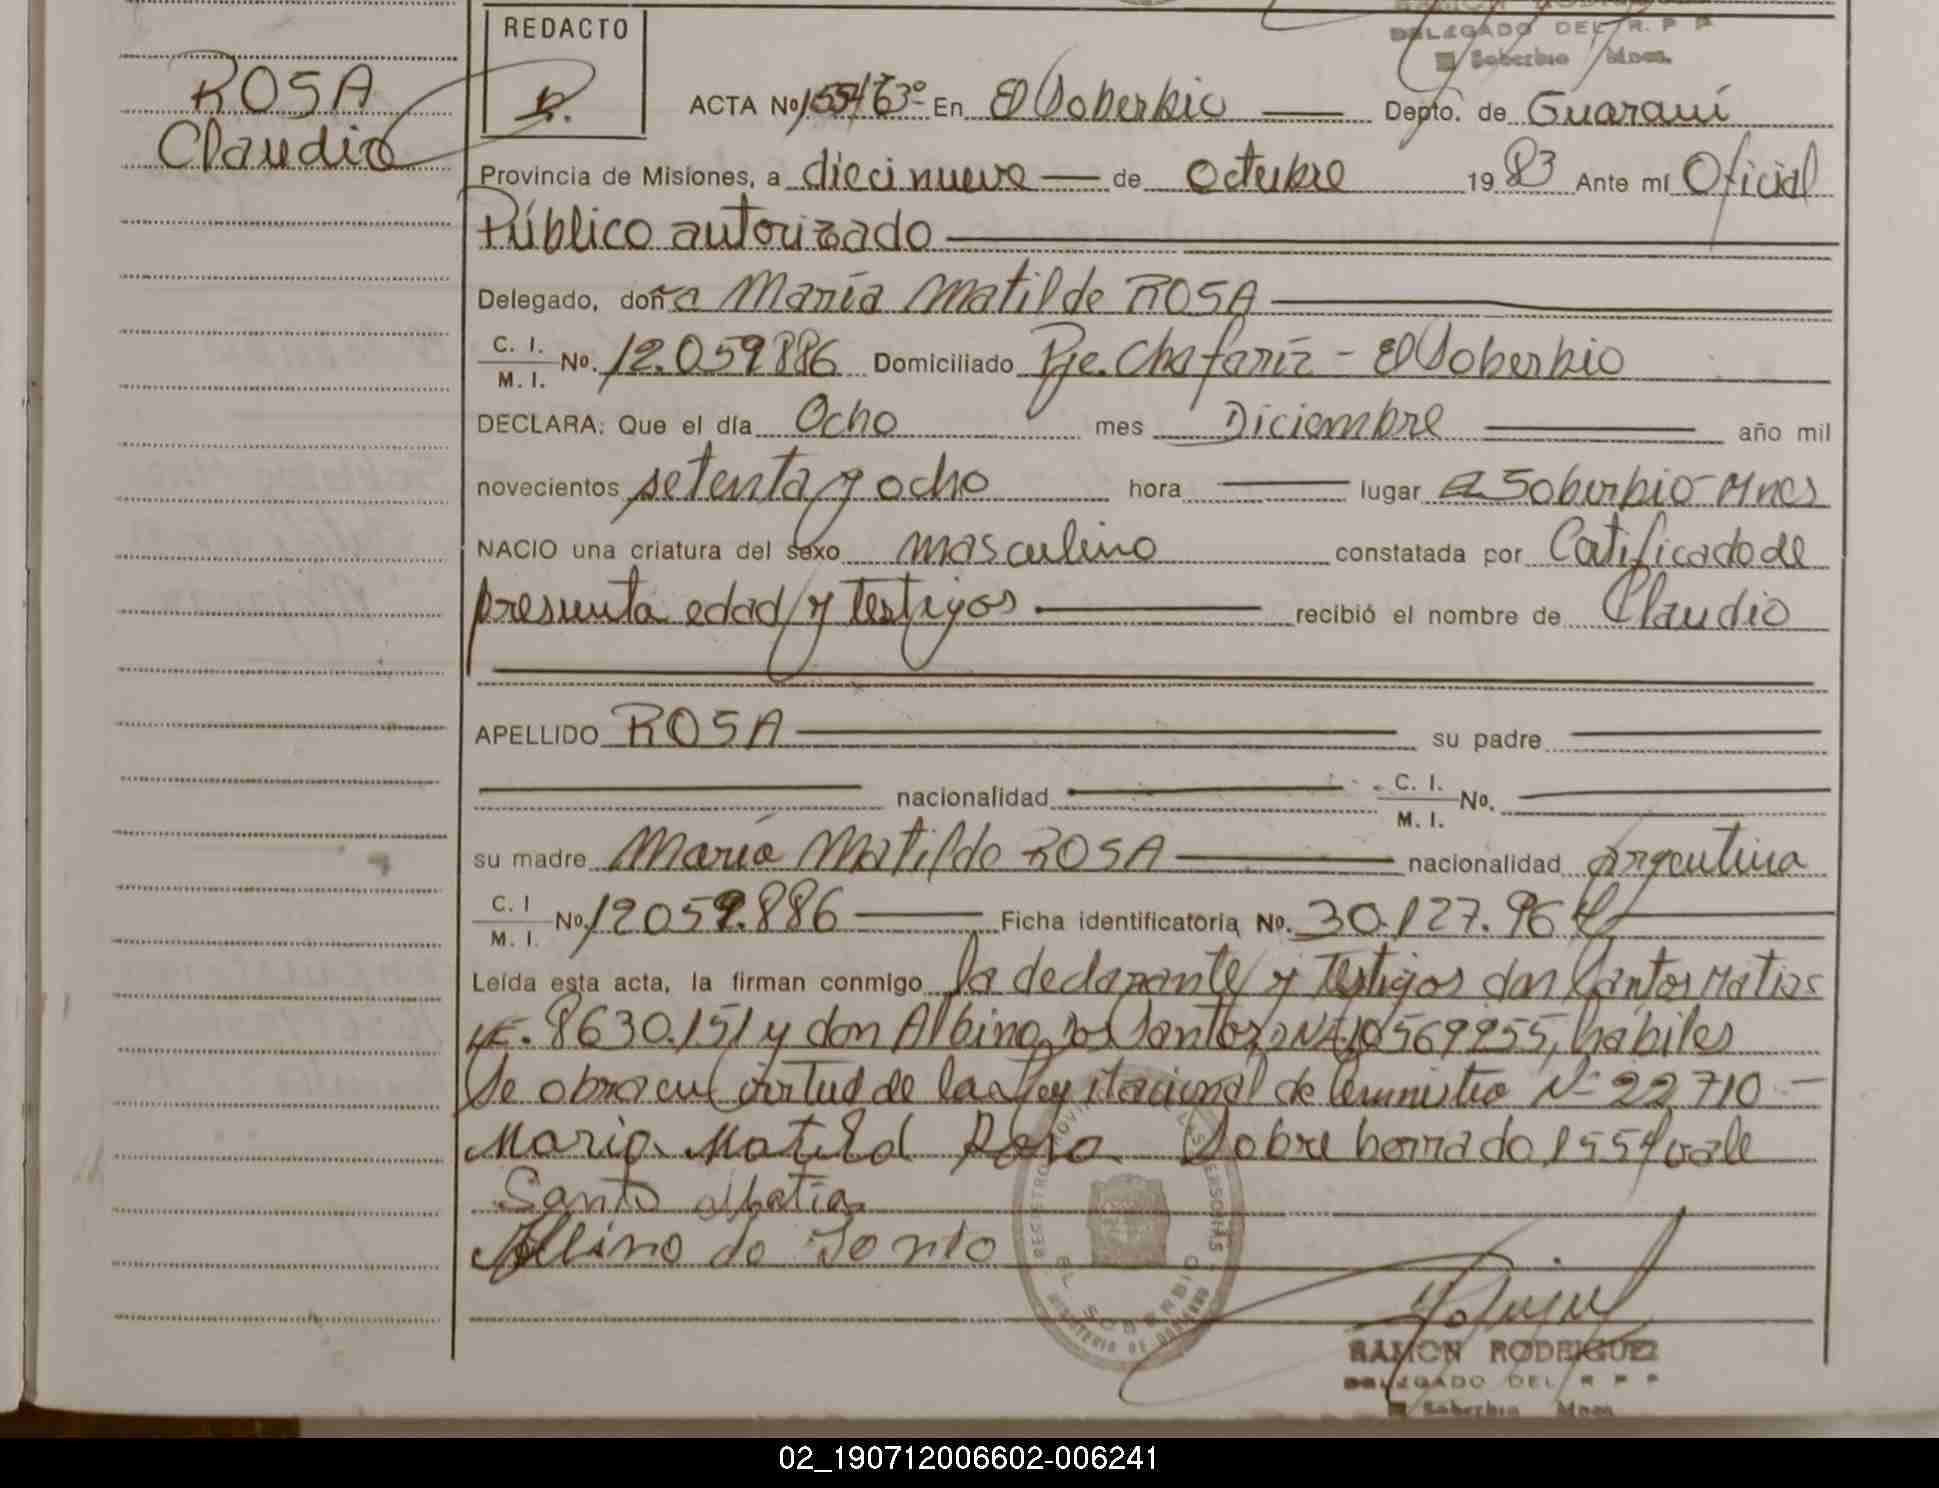 DELEGADO DEL R. P P
Soberbio Mnes.
REDACTO
ROSA
Claudio
ACTA No 1554 T 63º En El Soberbio Depto. de Guaraní
Provincia de Misiones, a diecinueve de Octubre 19 83 Ante mí Oficial
Público autorizado
Delegado, doña María Matilde ROSA
C. I.
M. I. No. 12.059886 Domiciliado Pje. Chafariz - El Soberbio
DECLARA: Que el día Ocho mes Diciembre año mil
novecientos setenta y ocho hora lugar El Soberbio-Mnes
NACIO una criatura del sexo masculino constatada por Certificado de
presunta edad y testigos recibió el nombre de Claudio
APELLIDO ROSA su padre
nacionalidad C. I.
M. I. No.
su madre María Matilde ROSA nacionalidad argentina
C. I
M. I. No 12059.886 Ficha identificatoria No. 30.127.964
Leída esta acta, la firman conmigo la declarante y Testigos don Santos Matias
LE. 8630.151 y don Albino dos Santos DNI. 10569955, hábiles
Se obra en virtud de la Ley Nacional de Amnistia Nº 22710
Maria Matild Rosa Sobre borrado 1554 vale
Santo Matia
Albino do Santo
REGISTRO PROVINCIAL DE LAS PERSONAS
EL SOBERBIO
MINISTERIO DE GOBIERNO
RAMON RODRIGUEZ
DELEGADO DEL R P P
Soberbio Mnes
02_190712006602-006241